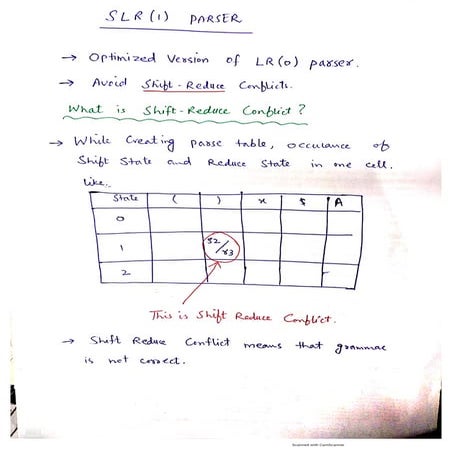 SLR(1) PARSER
→ Optimized Version of LR(0) parser.
→ Avoid Shift-Reduce Conflicts.
What is Shift-Reduce Conflict?
→ While Creating parse table, occulance of
Shift State and Reduce State in one cell.
like,
State ( ) x $ A
0
1 S2/r3
2
This is Shift Reduce Conflict.
→ Shift Reduce Conflict means that grammar
is not correct.
Scanned with CamScanner